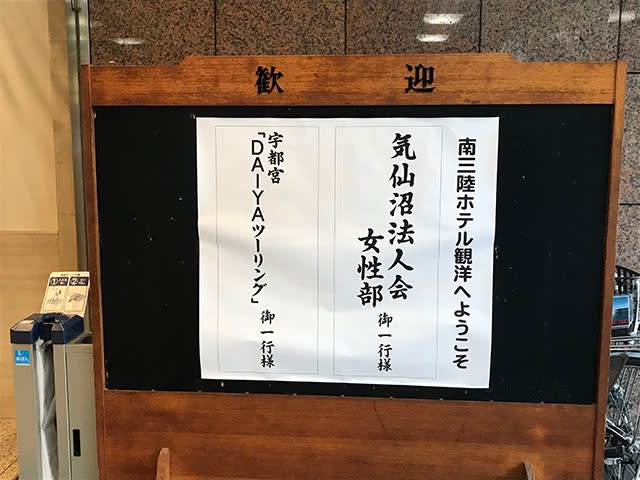 歓迎
南三陸ホテル観洋へようこそ
気仙沼法人会
女性部
御一行様
宇都宮
「DAIYAツーリング」
御一行様
① ②